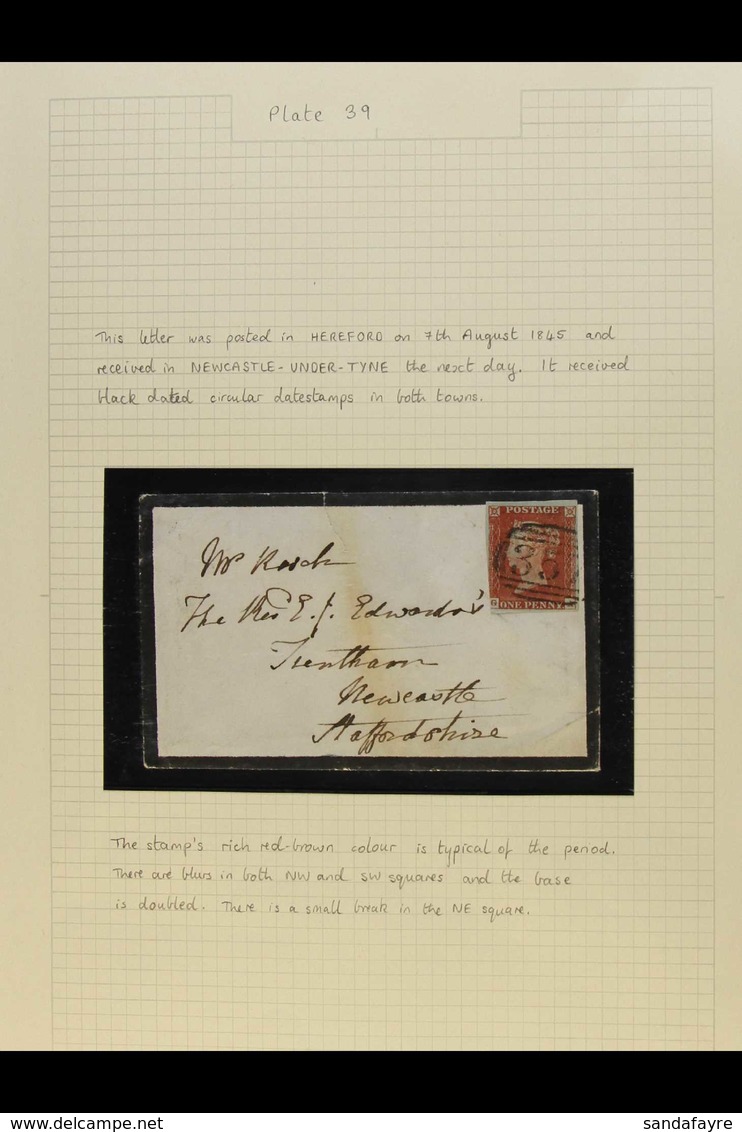 Plate 39
This letter was posted in HEREFORD on 7th August 1845 and
received in NEWCASTLE-UNDER-TYNE the next day. It received
black dated circular datestamps in both towns.
POSTAGE
35
ONE PENNY
Mr
The Rev E. J. Edwards's
Trentham
Newcastle
Staffordshire
The stamp's rich red-brown colour is typical of the period.
There are blurs in both NW and SW squares and the base
is doubled. There is a small break in the NE square.
www.delcampe.net
sandafayre